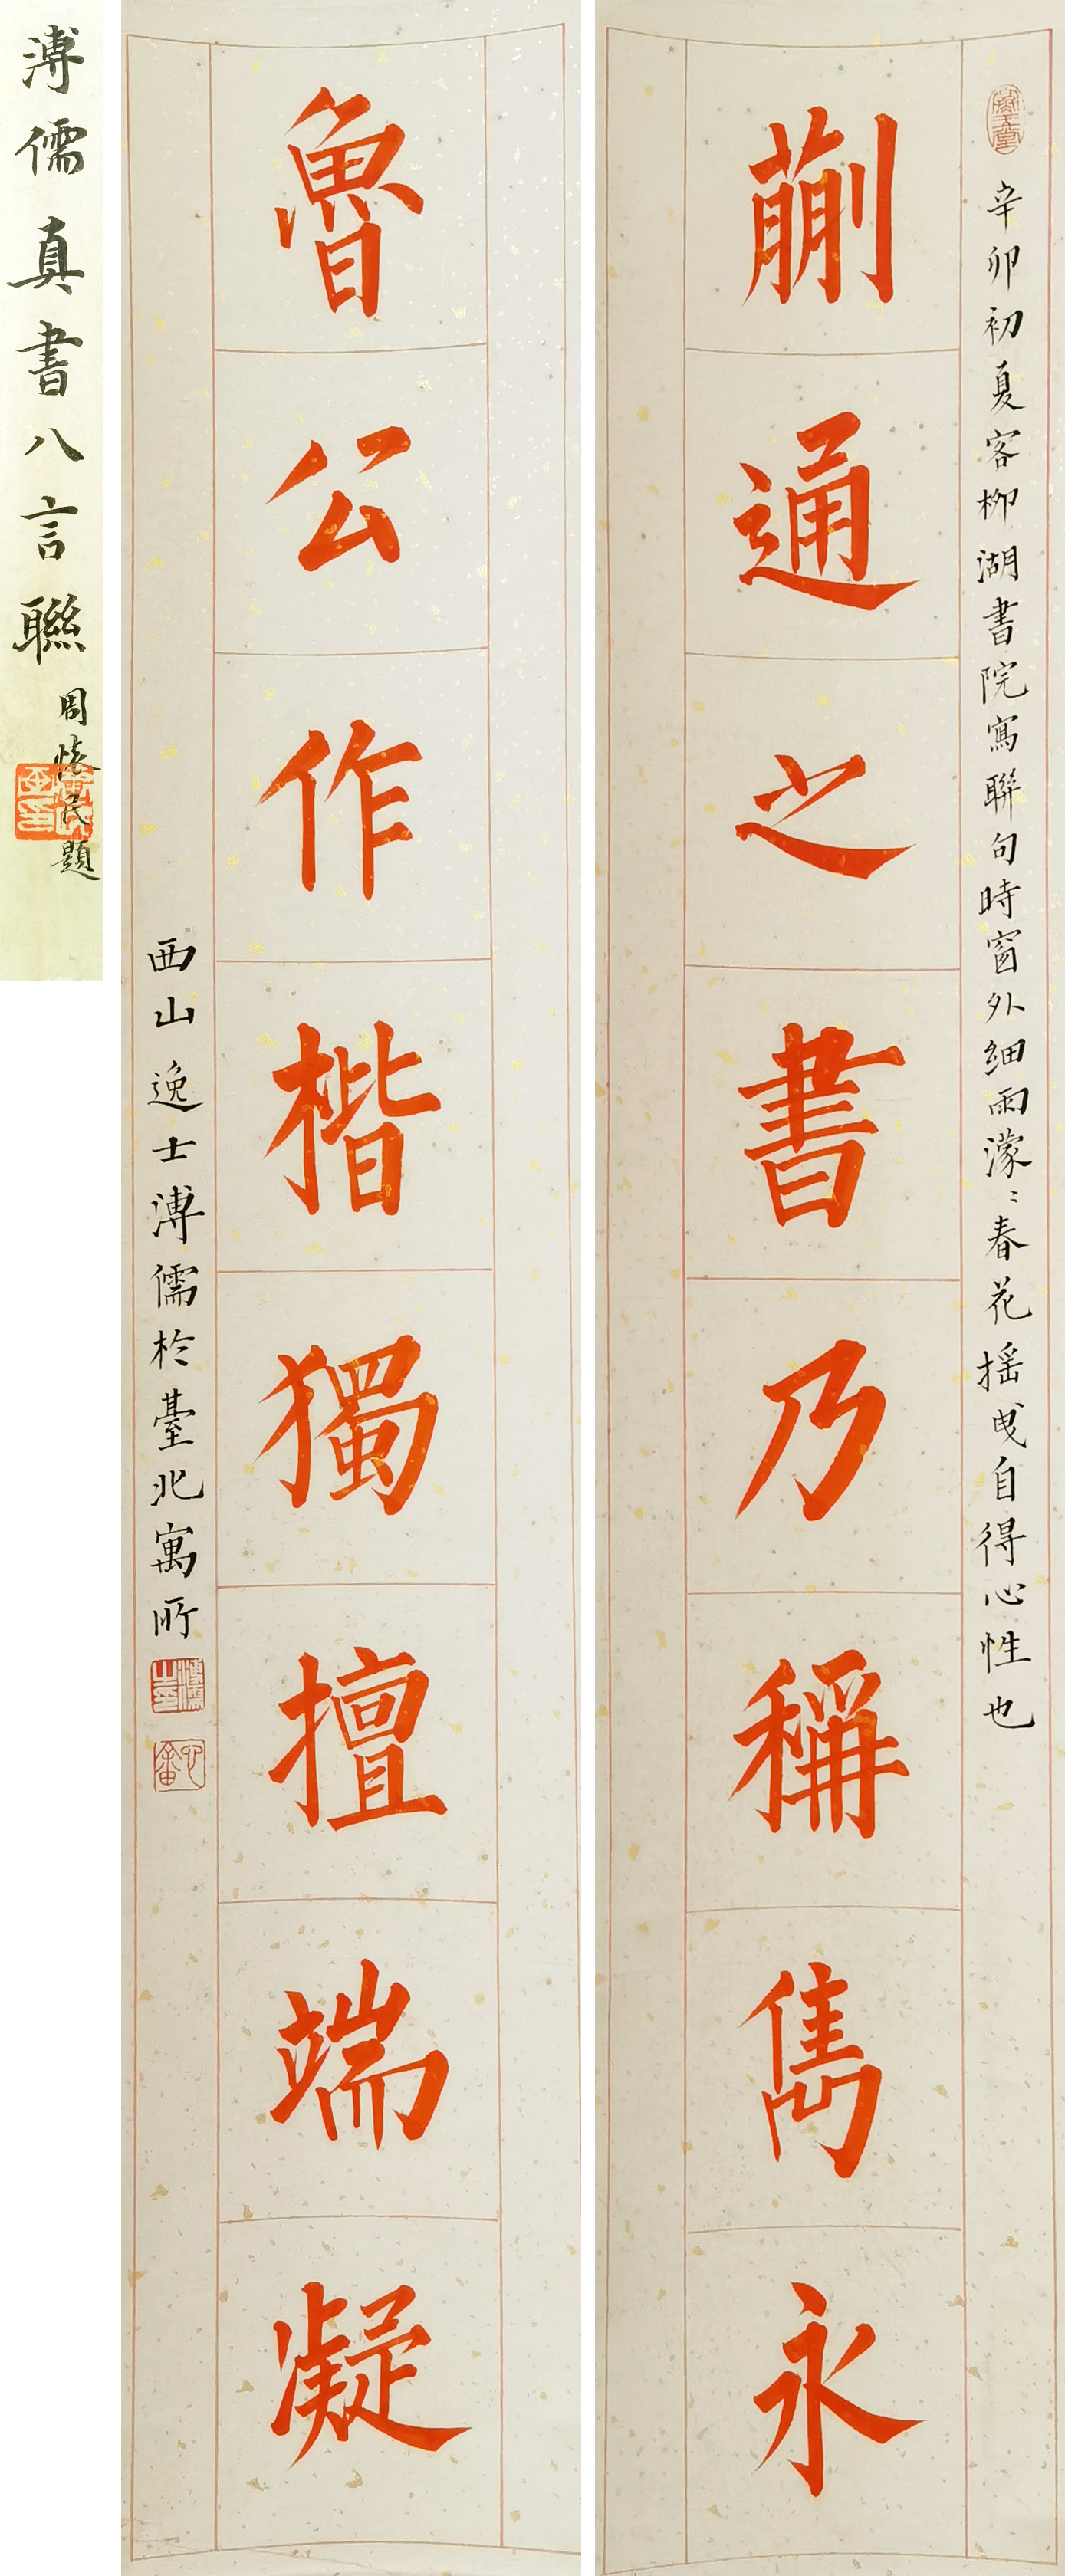 辛卯初夏客柳湖書院寫聯句時窗外細雨濛〻春花搖曳自得心性也
蒯通之書乃稱雋永
魯公作楷獨擅端凝
西山逸士溥儒於臺北寓所
溥儒之印
溥儒真書八言聯
周懷民題